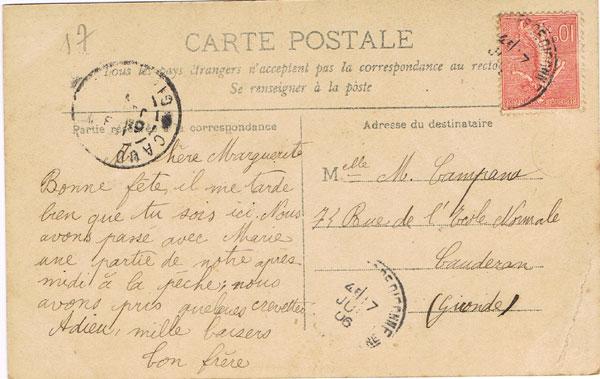 17
CARTE POSTALE
Tous les pays étrangers n'acceptent pas la correspondance au recto
Se renseigner à la poste
Partie réservée à la correspondance
Chère Marguerite
Bonne fête, il me tarde
bien que tu sois ici. Nous
avons passé avec Marie
une partie de notre après
midi à la pêche; nous
avons pris quelques crevettes
Adieu, mille baisers
ton frère
Adresse du destinataire
Melle M. Campana
73 Rue de l'Ecole Normale
Cauderan
(Gironde)
10
CAUD
17
JU
06